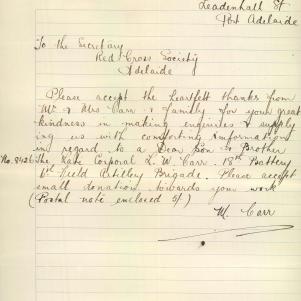 Leadenhall St
Port Adelaide
To the Secretary
Red Cross Society
Adelaide
Please accept the heartfelt thanks from
Mr & Mrs Carr & family for your great
kindness in making enquiries & supply
ing us with comforting information
in regard to a Dear Son & Brother
No. 8426 The late Corporal L. W. Carr. 18th Battery
1st Field Artillery Brigade. Please accept
small donation towards your work
(Postal note enclosed 5/)
M. Carr